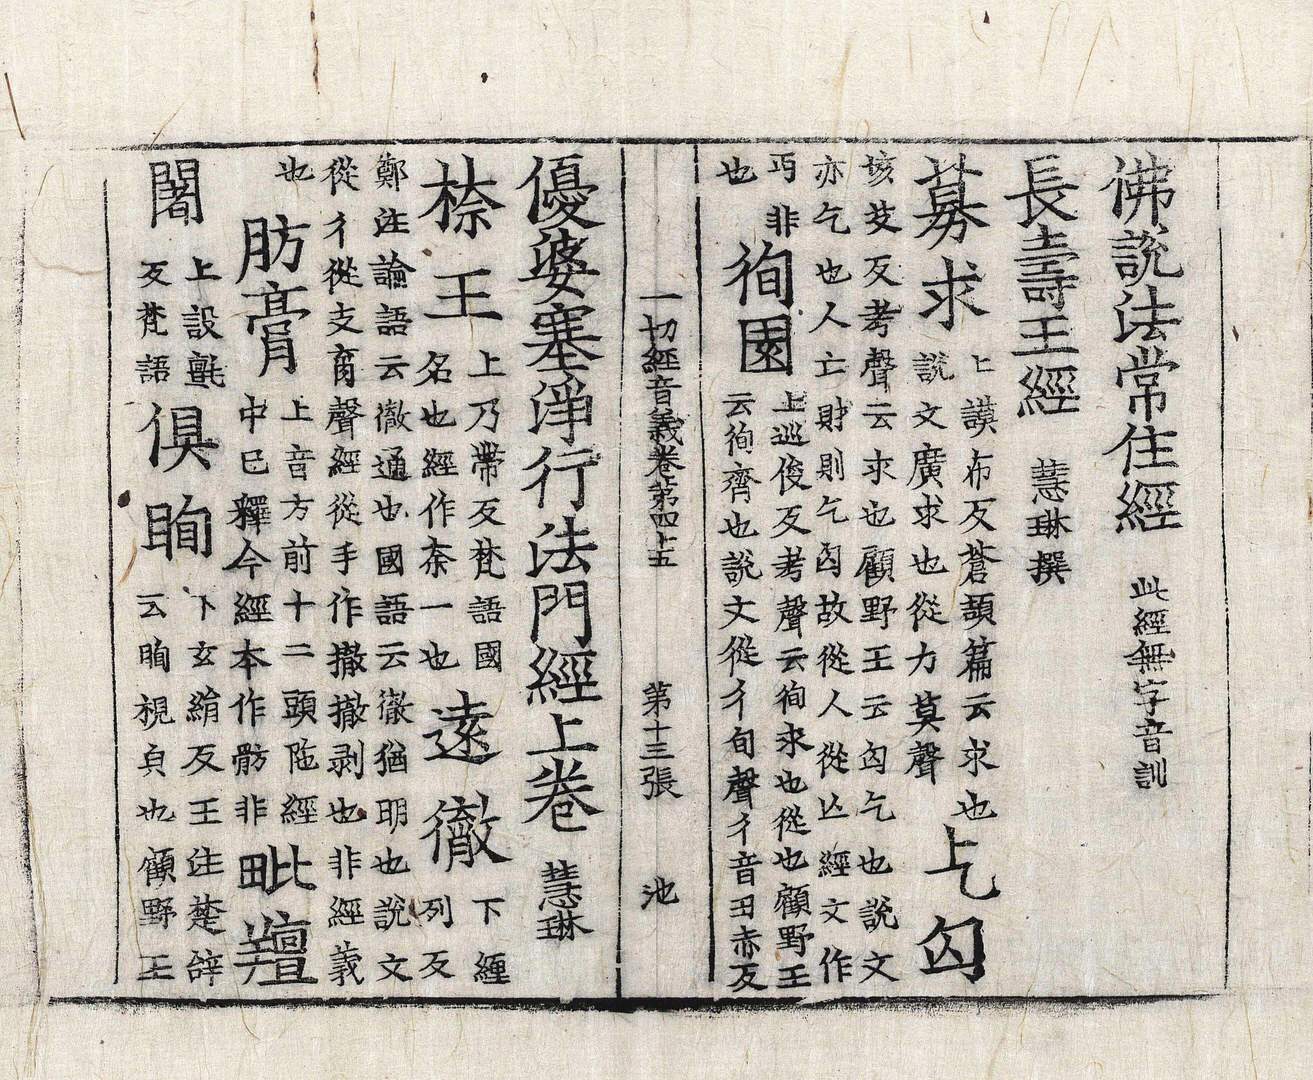 佛說法常住經 此經無字音訓
長壽王經 慧琳撰
募求 上謨布反蒼頡篇云求也
說文廣求也從力莫聲 乞匃
垓艾反考聲云求也顧野王云匃乞也說文
亦乞也人亡財則乞匃故從人從亾經文作
丐非
也 徇園 上巡俊反考聲云徇求也從也顧野王
云徇齊也說文從彳旬聲彳音丑赤反
一切經音義卷第四十五 第十三張 池
優婆塞淨行法門經上卷 慧琳
㮈王 上乃帶反梵語國
名也經作柰一也 遠徹 下纏
列反
鄭注論語云徹通也國語云徹猶明也說文
從彳從支育聲經從手作撤撤剥也非經義
也 肪膏 上音方前十二頭陁經
中已釋今經本作骯非 毗羶
闍 上設氊
反梵語 俱眴 下玄絹反王注楚辝
云眴視皃也顧野王